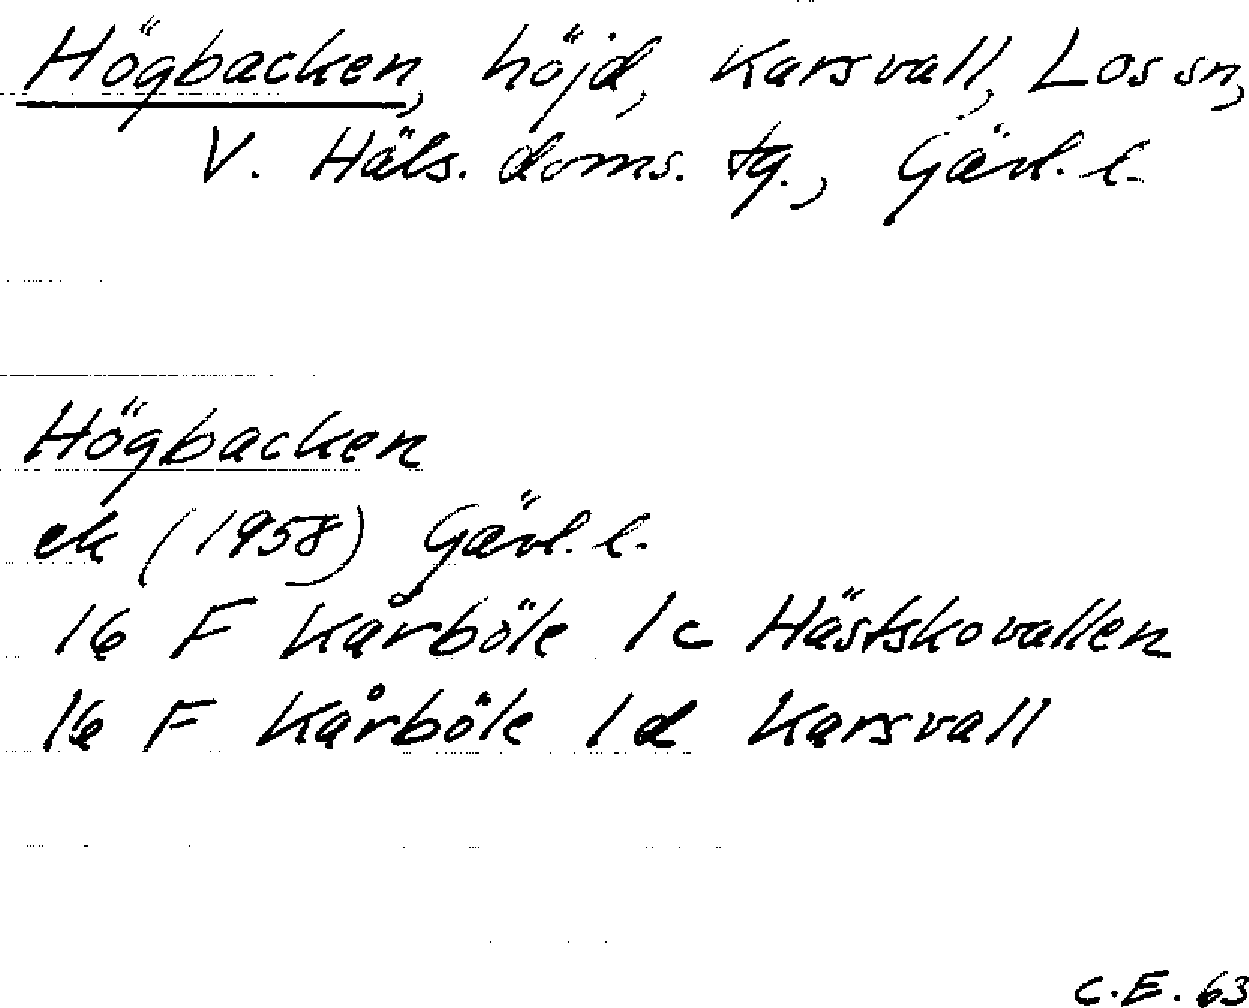 Högbacken, höjd, Karsvall, Los sn,
V. Häls. doms. tg., Gävl. l.
Högbacken
ek (1958) Gävl. l.
16 F Kårböle 1c Hästskovallen
16 F Kårböle 1d Karsvall
C.E. 63